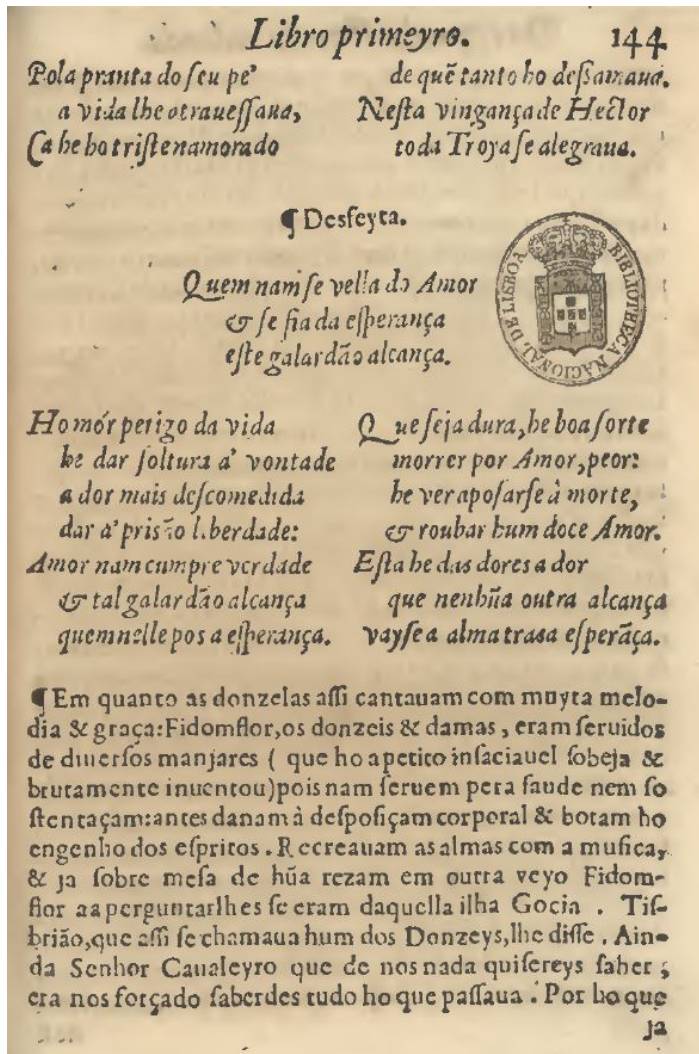 Libro primeyro. 144
Pola pranta do ſeu pe'
a vida lhe atraueſſaua,
Ca he ho triſte namorado
de quẽ tanto ho deſamaua.
Neſta vingança de Hector
toda Troya ſe alegraua.
¶ Desfeyta.
Quem nam ſe vella do Amor
& ſe fia da eſperança
eſte galardão alcança.
BIBLIOTHECA NACIONAL DE LISBOA
Ho mór perigo da vida
he dar ſoltura a' vontade
a dor mais deſcomedida
dar a' prisão liberdade:
Amor nam cumpre verdade
& tal galardão alcança
quem nelle pos a eſperança.
Que ſeja dura, he boa ſorte
morrer por Amor, peor:
he ver apoſarſe à morte,
& roubar hum doce Amor.
Eſta he das dores a dor
que nenhũa outra alcança
vayſe a alma tras a eſperãça.
¶ Em quanto as donzelas aſſi cantauam com muyta melo-
dia & graça: Fidomflor, os donzeis & damas, eram ſeruidos
de diuerſos manjares ( que ho apetito inſaciauel ſobeja &
brutamente inuentou) pois nam ſeruem pera ſaude nem ſo
ſtentaçam: antes danam à deſpoſiçam corporal & botam ho
engenho dos eſpritos. Recreauam as almas com a muſica,
& ja ſobre meſa de hũa rezam em outra veyo Fidom-
flor aa perguntarlhes ſe eram daquella ilha Gocia . Tiſ-
brião, que aſſi ſe chamaua hum dos Donzeys, lhe diſſe . Ain-
da Senhor Caualeyro que de nos nada quiſereys ſaber ;
era nos forçado ſaberdes tudo ho que paſſaua . Por ho que
ja